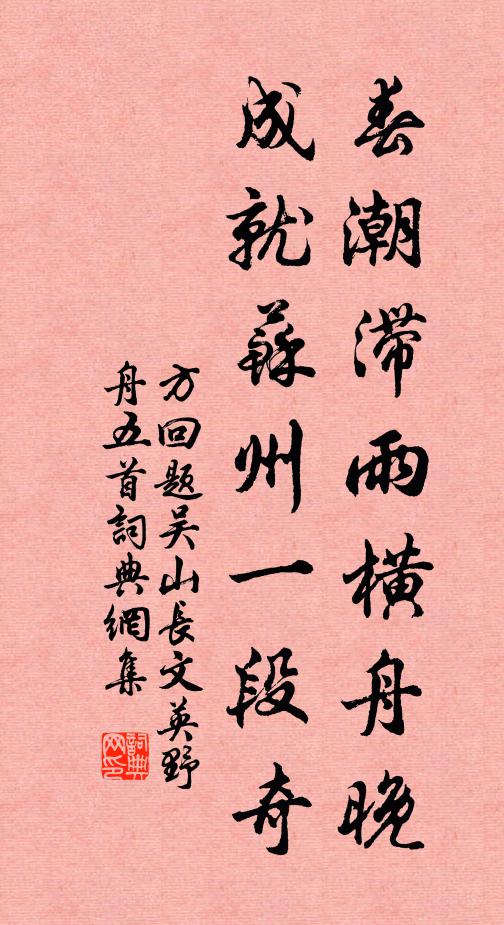 春潮滯雨橫舟晚
成就蘇州一段奇
方回題吴山長文英野
舟五首詞典網集
詞典
网印